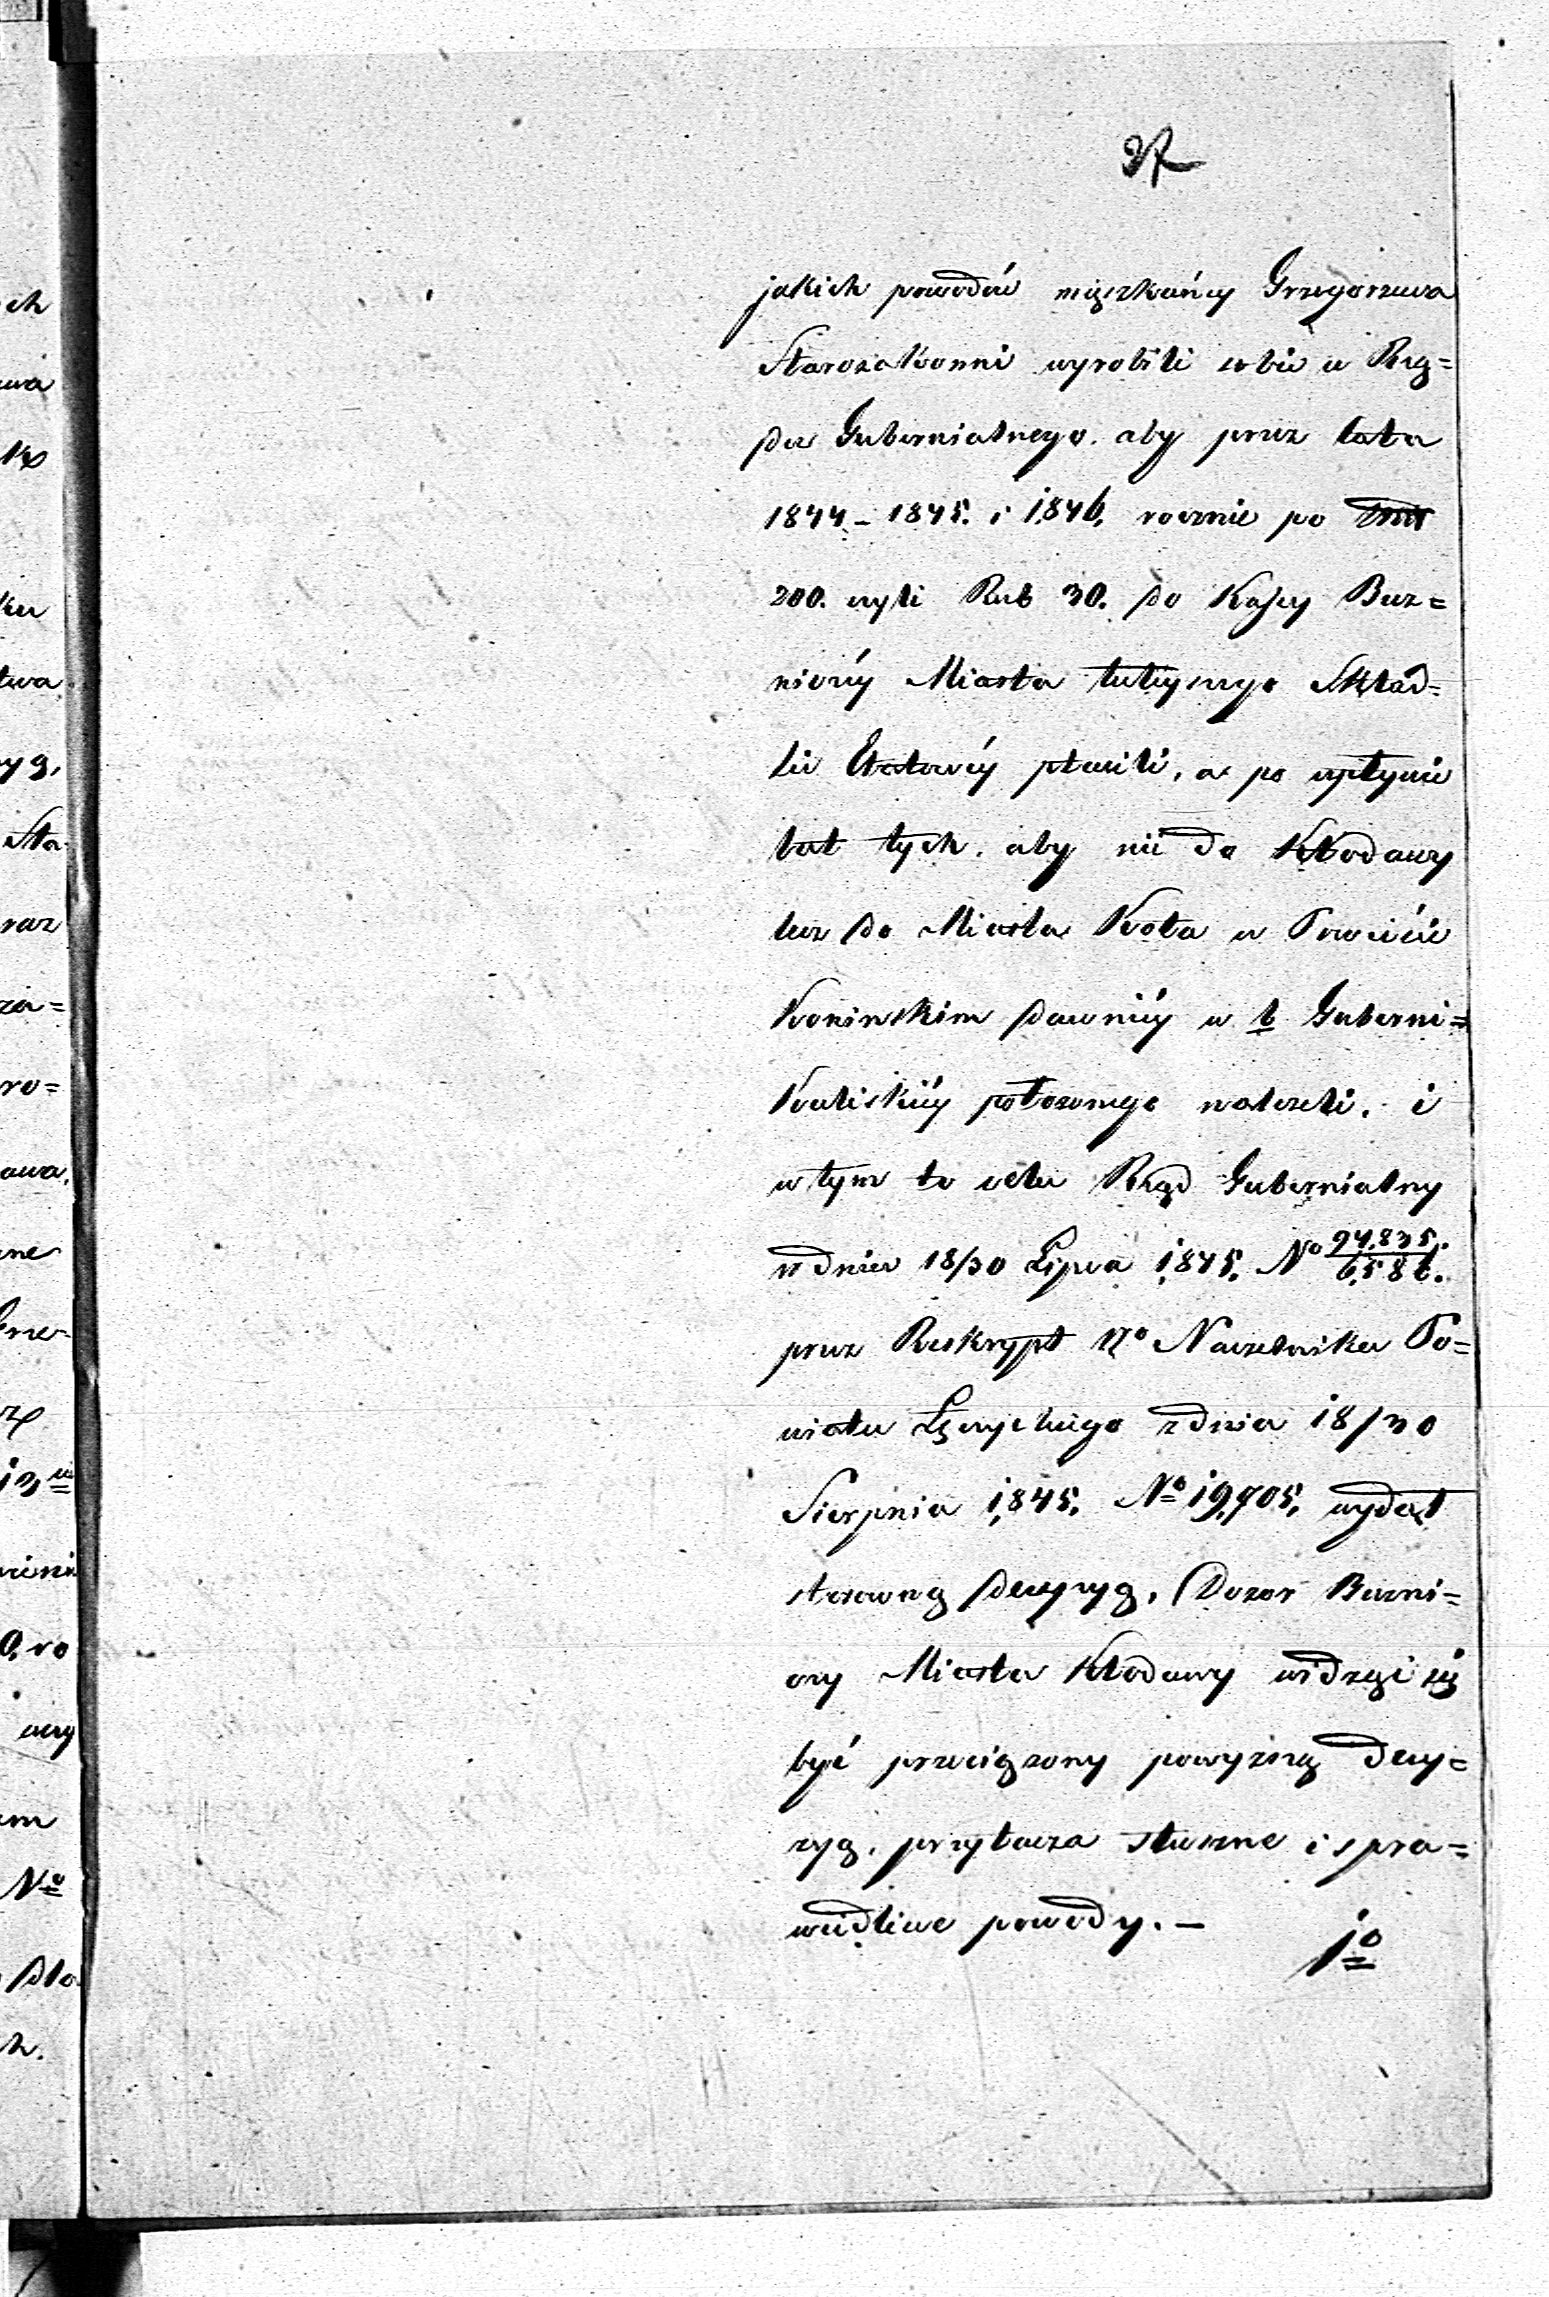 37
jakich powodów mięszkańcy Grzegorzewa
Starozakonni wyrobili sobie u Rzą=
du Gubernialnego. aby przez lata
1844 - 1845. i 1846. rocznie po
200. czyli Rub 30. do Kassy Buz=
niczéy Miasta tuteyszego Skład=
ki Etatowéy płacili, a po upłynie
lat tych. aby nie do Kłodawy
lecz do Miasta Koła w Powiécie
Konińskim dawniéy w b Guberni=
Kaliskiéy położonego należeli. i
w tym to celu Rząd Gubernialny
w dniu 18/30 Lipca 1845. No 24,835./6,586.
przez Reskrypt Wo Naczelnika Po=
wiatu Łęczyckiego z dnia 18/30
Sierpnia 1845. No 19,705. wydał
stosowną decyzyą, Dozor Buzni=
czy Miasta Kłodawy widząc się
być przeciążony powyższą decy=
zyą. przytacza słuszne i spra=
wiedliwe powody. -
1o
ch
wa
ku
twa
yą,
Sta
raz
za=
ro=
awa,
ne
13
0, ro
wy
em
No
dla
h.